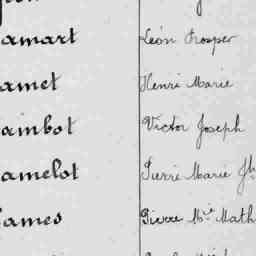 amart Léon Prosper
amet Henri Marie
ambot Victor Joseph
amelot Pierre Marie Jh
ames Pierre Mie Math